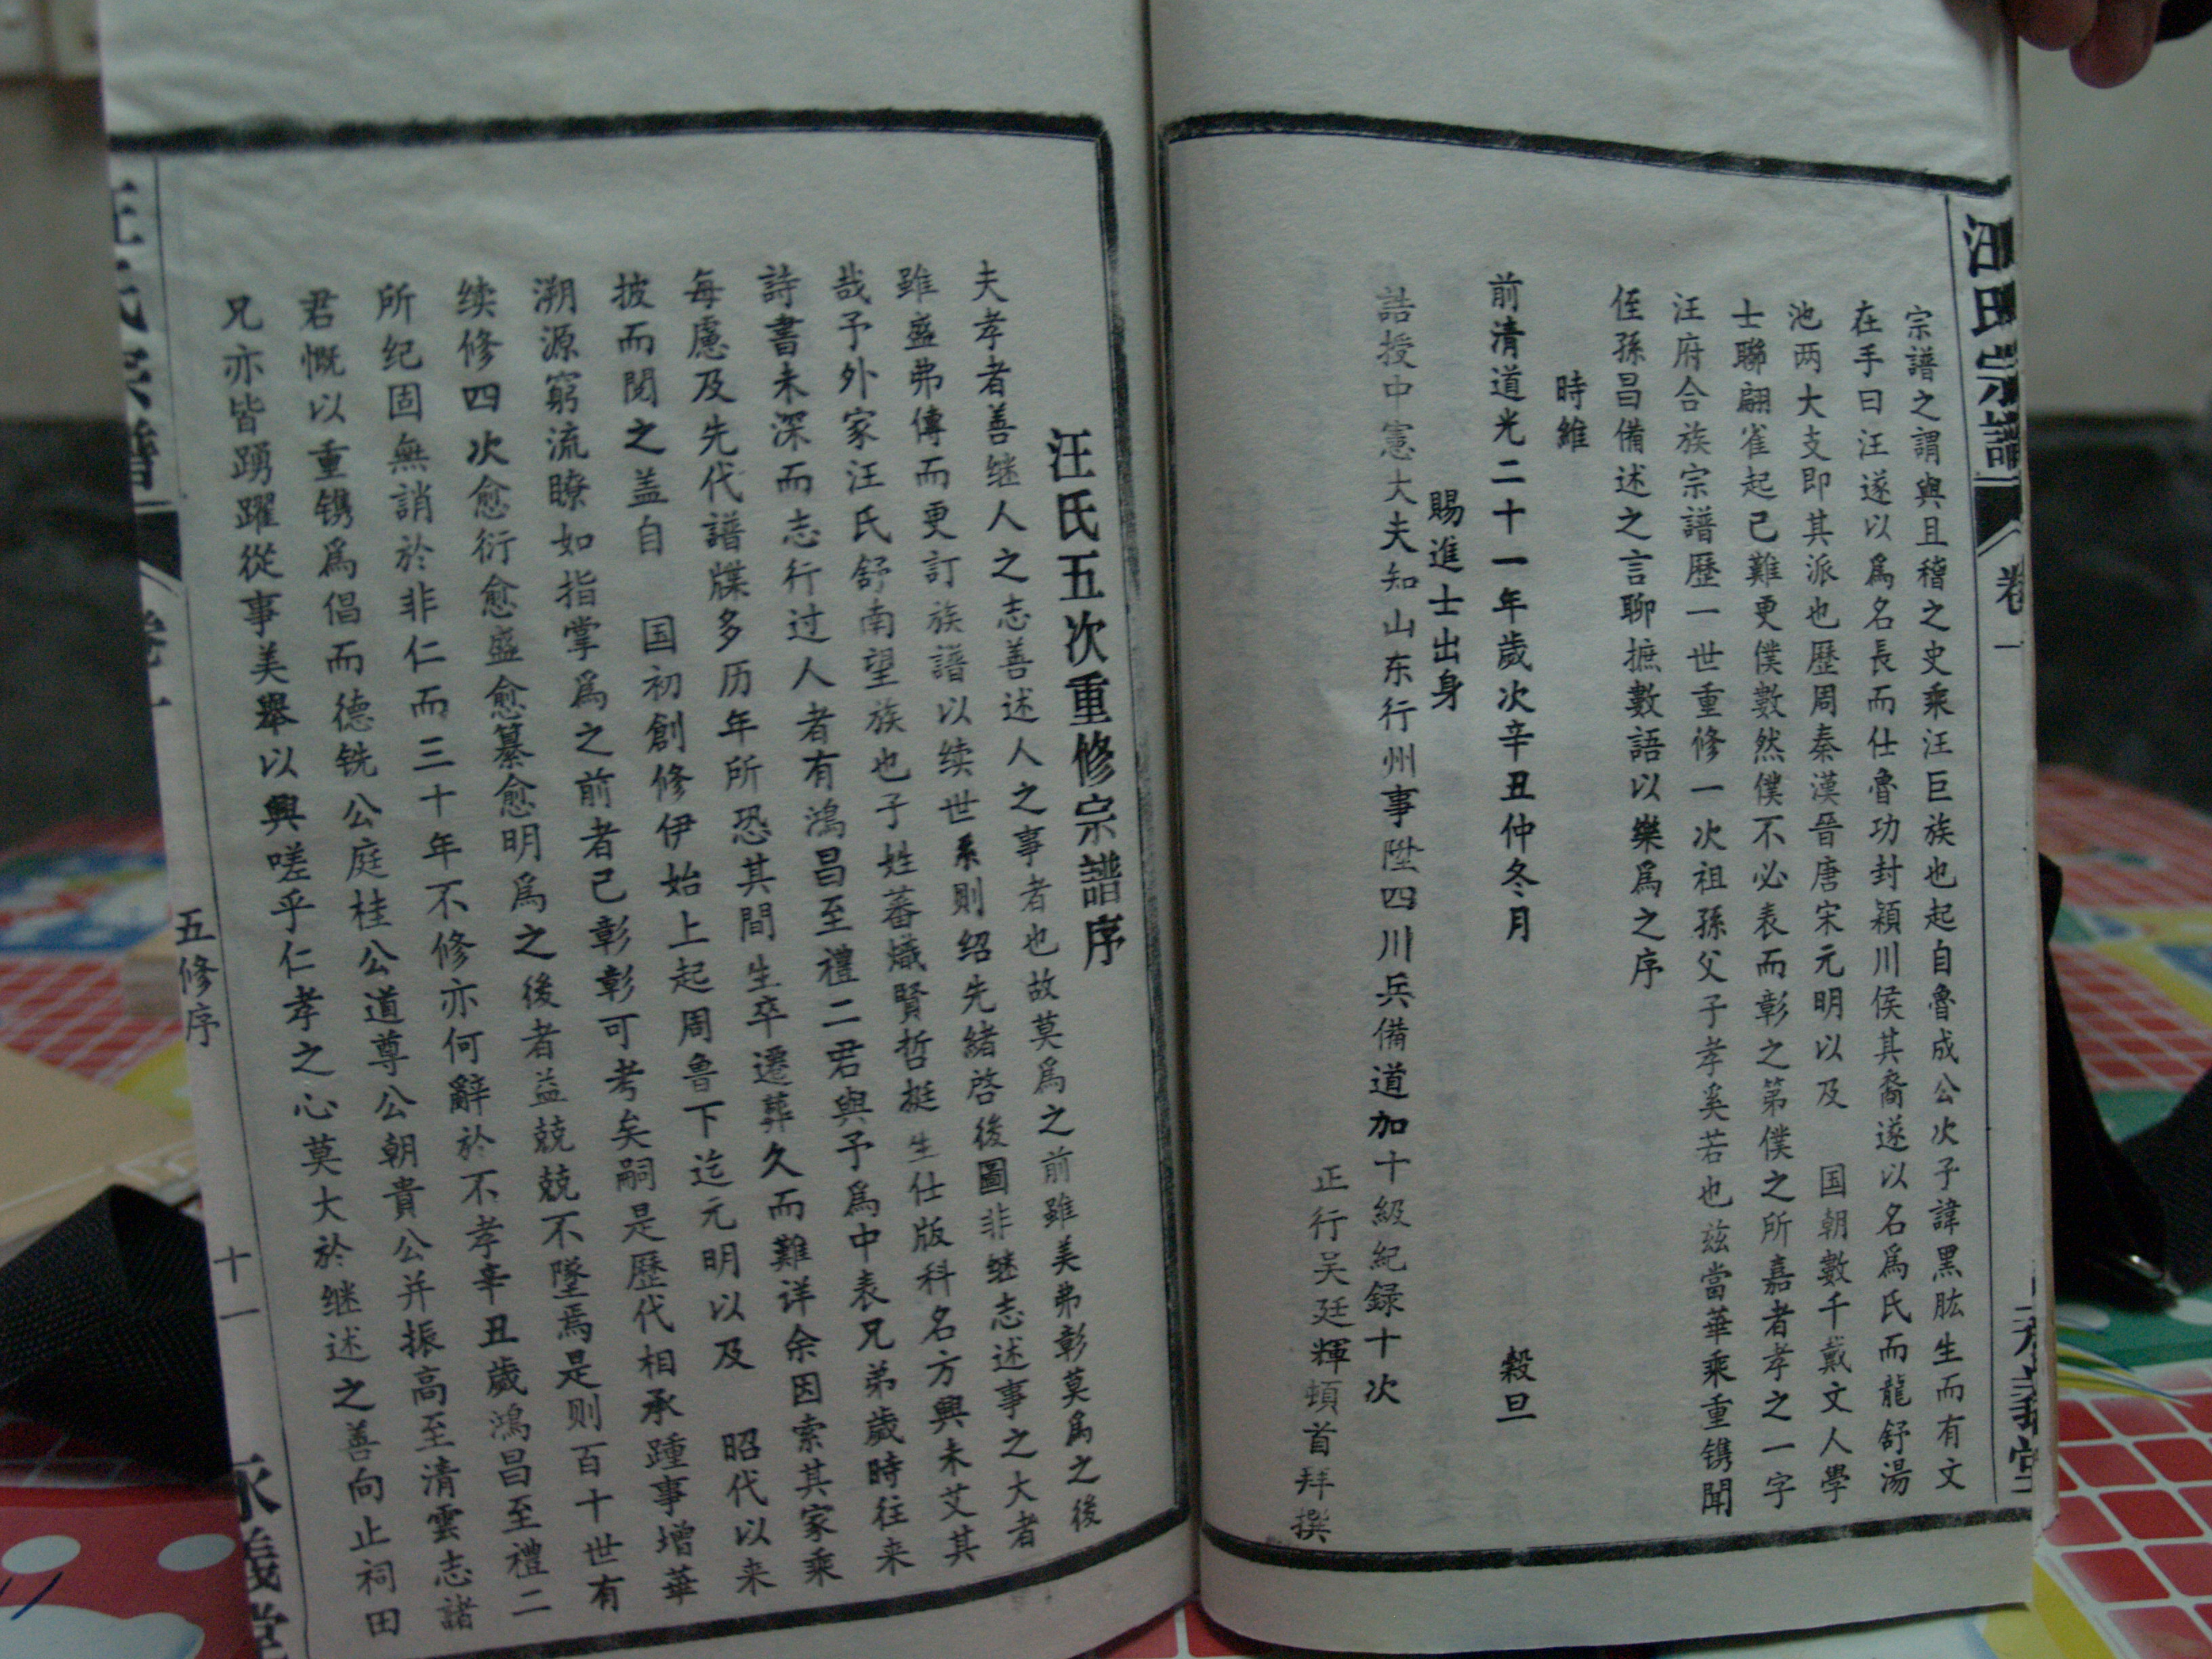 汪氏宗譜
卷一
宗譜之謂與且稽之史乘汪巨族也起自魯成公次子諱黑肱生而有文
在手曰汪遂以為名長而仕魯功封潁川侯其裔遂以名為氏而龍舒湯
池两大支即其派也歷周秦漢晉唐宋元明以及 国朝數千載文人學
士聯翩雀起已難更僕數然僕不必表而彰之第僕之所嘉者孝之一字
汪府合族宗譜歷一世重修一次祖孫父子孝奚若也兹當華乘重镌聞
侄孫昌備述之言聊摭數語以樂為之序
時維
前清道光二十一年歲次辛丑仲冬月 穀旦
賜進士出身
誥授中憲大夫知山东行州事陞四川兵備道加十級紀録十次
正行吴廷輝頓首拜撰
汪氏五次重修宗譜序
夫孝者善继人之志善述人之事者也故莫為之前雖美弗彰莫為之後
雖盛弗傳而更訂族譜以续世系则绍先緒啓後圖非继志述事之大者
哉予外家汪氏舒南望族也子姓蕃熾賢哲挺生仕版科名方興未艾其
詩書未深而志行过人者有鴻昌至禮二君與予為中表兄弟歲時往来
每慮及先代譜牒多历年所恐其間生卒遷葬久而難详余因索其家乘
披而閱之盖自 国初創修伊始上起周鲁下迄元明以及 昭代以来
溯源窮流瞭如指掌為之前者已彰彰可考矣嗣是歷代相承踵事增華
续修四次愈衍愈盛愈纂愈明為之後者益兢兢不墜焉是则百十世有
所纪固無誚於非仁而三十年不修亦何辭於不孝辛丑歲鴻昌至禮二
君慨以重镌為倡而德铣公庭桂公道尊公朝貴公并振高至清雲志諸
兄亦皆踴躍從事美舉以興嗟乎仁孝之心莫大於继述之善向止祠田
五修序
十一
永義堂